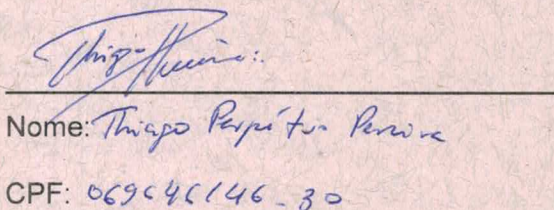 Thiago Pereira
Nome: Thiago Perpétuo Pereira
CPF: 069646146-30